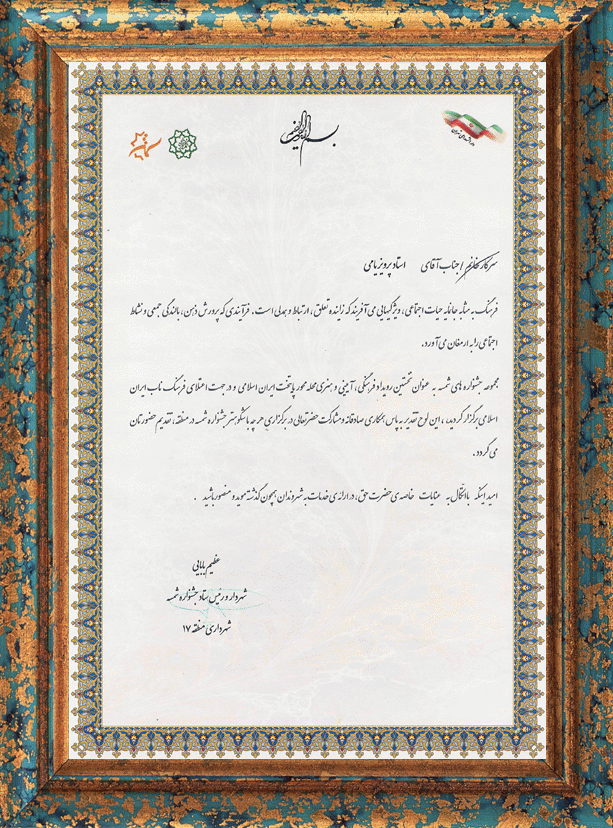 بسم الله الرحمن الرحیم
سرکار خانم / جناب آقای استاد پرویز یامی
فرهنگ به مثابه جانمایه حیات اجتماعی، ویژگیهایی می آفریند که زاینده تعلق، ارتباط و همدلی است. فرآیندی که پرورش ذهن، بالندگی جمعی و نشاط
اجتماعی را به ارمغان می آورد.
مجموعه جشنواره های شمسه به عنوان نخستین رویداد فرهنگی، آیینی و هنری محله محور پایتخت ایران اسلامی و در جهت اعتلای فرهنگ ناب ایران
اسلامی برگزار گردید، این لوح تقدیر به پاس همکاری صادقانه و مشارکت حضرتعالی در برگزاری هر چه باشکوهتر جشنواره شمسه در منطقه، تقدیم حضورتان
می گردد.
امید اینکه با اتکال به عنایات خاصه ی حضرت حق، در ارائه ی خدمات به شهروندان همچون گذشته موید و منصور باشید .
عظیم بابایی
شهردار و رئیس ستاد جشنواره شمسه
شهرداری منطقه ۱۷